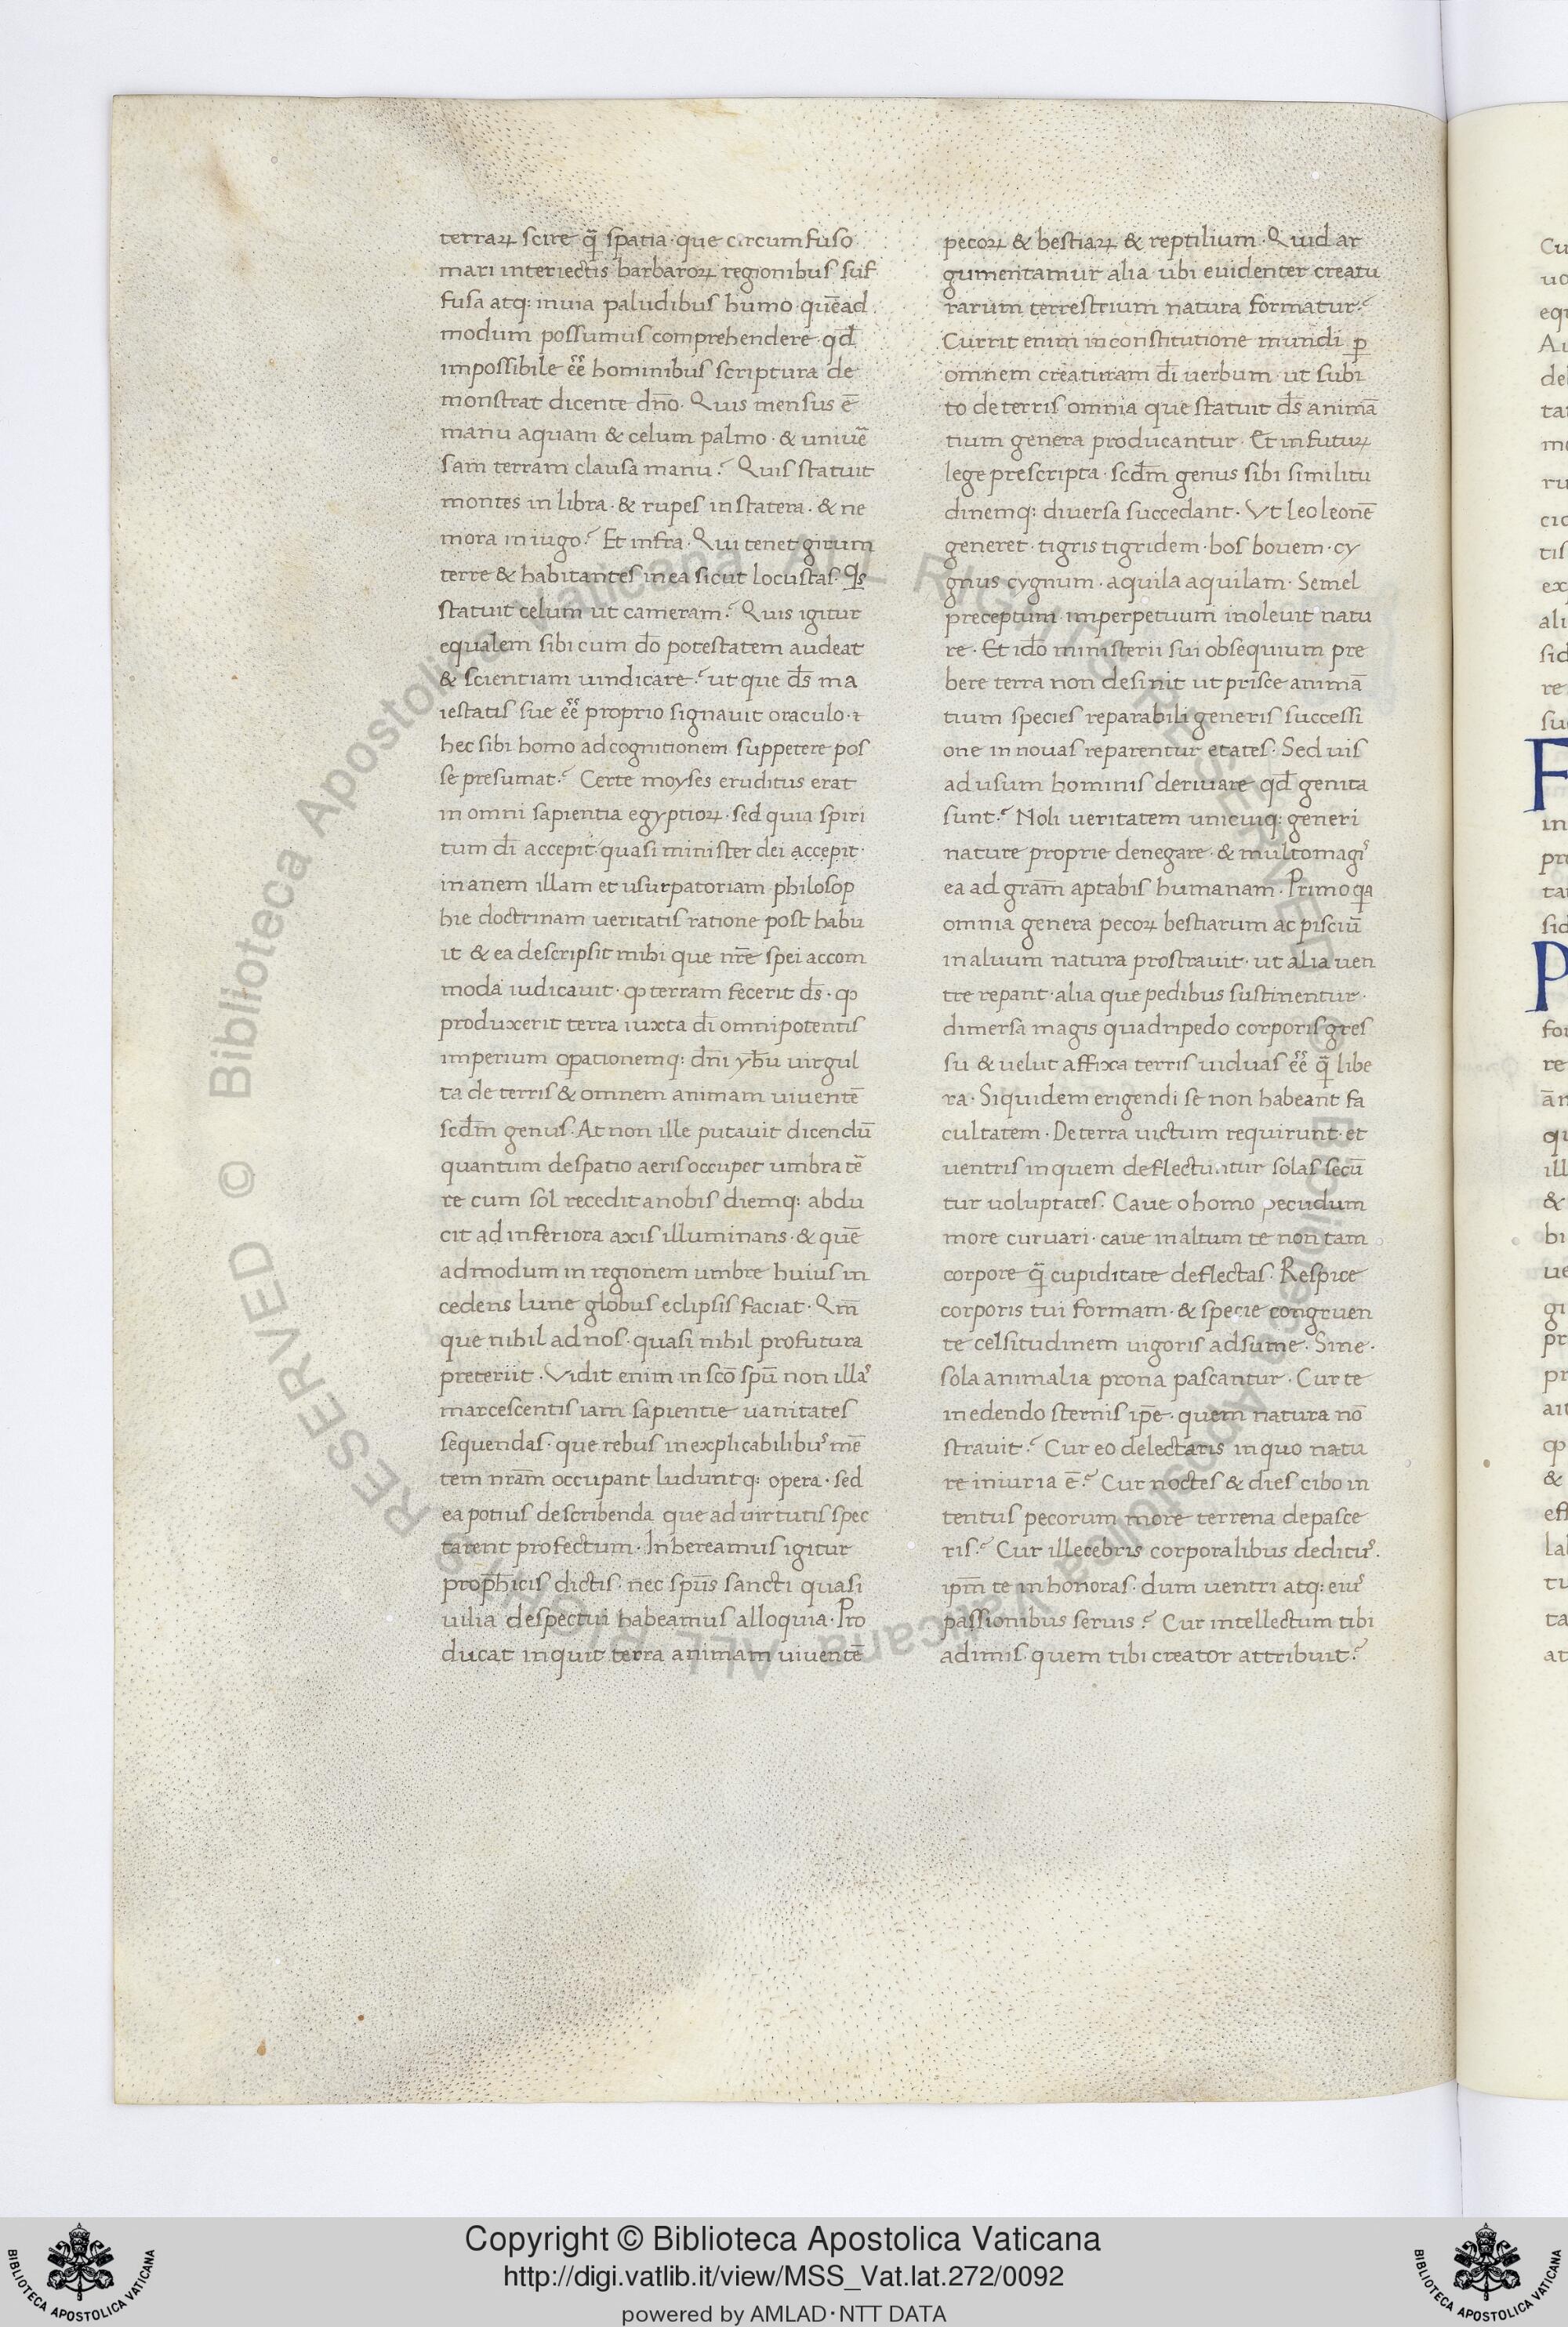 terraꝝ scire q̃ spatia· que circumfuso
mari interiectis barbaroꝝ regionibus suf
fusa atq: inuia paludibus humo· quẽad
modum possumus comprehendere· qđ
impossibile ẽẽ hominibus scriptura de
monstrat dicente dño· Quis mensus ẽ
manu aquam & celum palmo· & uniuẽ
sam terram clausa manu? Quis statuit
montes in libra· & rupes in statera· & ne
mora in iugo? Et infra· Qui tenet girum
terre & habitantes in ea sicut locustas· Qs
statuit celum ut cameram? Quis igitur
equalem sibi cum do potestatem audeat
& scientiam uindicare? ut que ds ma
iestatis sue ẽẽ proprio signauit oraculo· ı
hec sibi homo ad cognitionem suppetere pos
se presumat? Certe moyses eruditus erat
in omni sapientia egyptioꝝ· sed quia spiri
tum di accepit· quasi minister dei accepit·
inanem illam et usurpatoriam philosop
hie doctrinam ueritatis ratione post habu
it & ea descripsit mihi que nr̃e spei accom
moda iudicauit· ꝙ terram fecerit ds· ꝙ
produxerit terra iuxta di omnipotentis
imperium opationemq: dñi yhu uirgul
ta de terris & omnem animam uiuentẽ
scdm genus· At non ille putauit dicendũ
quantum de spatio aeris occupet umbra tẽ
re cum sol recedit a nobis diemq: abdu
cit ad inferiora axis illuminans· & quẽ
admodum in regionem umbre huius in
cedens lune globus eclipsis faciat· Qm̃
que nihil ad nos· quasi nihil profutura
preteriit· Vidit enim in sco spu non illaˀ
marcescentis iam sapientie uanitates
sequendas· que rebus inexplicabilibuˀ mẽ
tem nram occupant luduntq: opera· sed
ea potius describenda que ad uirtutis spec
tarent profectum· Inhereamus igitur
prophicis dictis· nec spus sancti quasi
uilia despectui habeamus alloquia· Pro
ducat inquit terra animam uiuentẽ
pecoꝝ & bestiaꝝ & reptilium· Quid ar
gumentamur alia ubi euidenter creatu
rarum terrestrium natura formatur?
Currit enim in constitutione mundi ꝑ
omnem creaturam di uerbum· ut subi
to de terris omnia que statuit ds animã
tium genera producantur· Et in futuꝝ
lege prescripta· scdm genus sibi similitu
dinemq: diuersa succedant· Vt leo leonẽ
generet· tigris tigridem· bos bouem· cy
gnus cygnum· aquila aquilam· Semel
preceptum· imperpetuum inoleuit natu
re· Et ido ministerii sui obsequium pre
bere terra non desinit ut prisce animã
tium species reparabili generis successi
one in nouas reparentur etates· Sed uis
ad usum hominis deriuare qđ genita
sunt? Noli ueritatem unicuiq: generi
nature proprie denegare· & multomagiˀ
ea ad gram aptabis humanam· Primo qa
omnia genera pecoꝝ bestiarum ac pisciũ
in aluum natura prostrauit· ut alia uen
tre repant· alia que pedibus sustinentur·
dimersa magis quadripedo corporis gres
su & uelut affixa terris uiduas ẽẽ q̃ libe
ra· Siquidem erigendi se non habeant fa
cultatem· De terra uictum requirunt· et
uentris in quem deflectuntur solas secũ
tur uoluptates· Caue o homo pecudum
more curuari· caue in altum te non tam
corpore q̃ cupiditate deflectas· Respice
corporis tui formam· & specie congruen
te celsitudinem uigoris adsume· Sine·
sola animalia prona pascantur· Cur te
in edendo sternis ipe· quem natura nõ
strauit? Cur eo delectaris in quo natu
re iniuria ẽ? Cur noctes & dies cibo in
tentus pecorum more terrena depasce
ris? Cur illecebris corporalibus dedituˀ·
ipm te inhonoras· dum uentri atq: eiuˀ
passionibus seruis? Cur intellectum tibi
adimis· quem tibi creator attribuit?
Copyright © Biblioteca Apostolica Vaticana
http://digi.vatlib.it/view/MSS_Vat.lat.272/0092
powered by AMLAD·NTT DATA